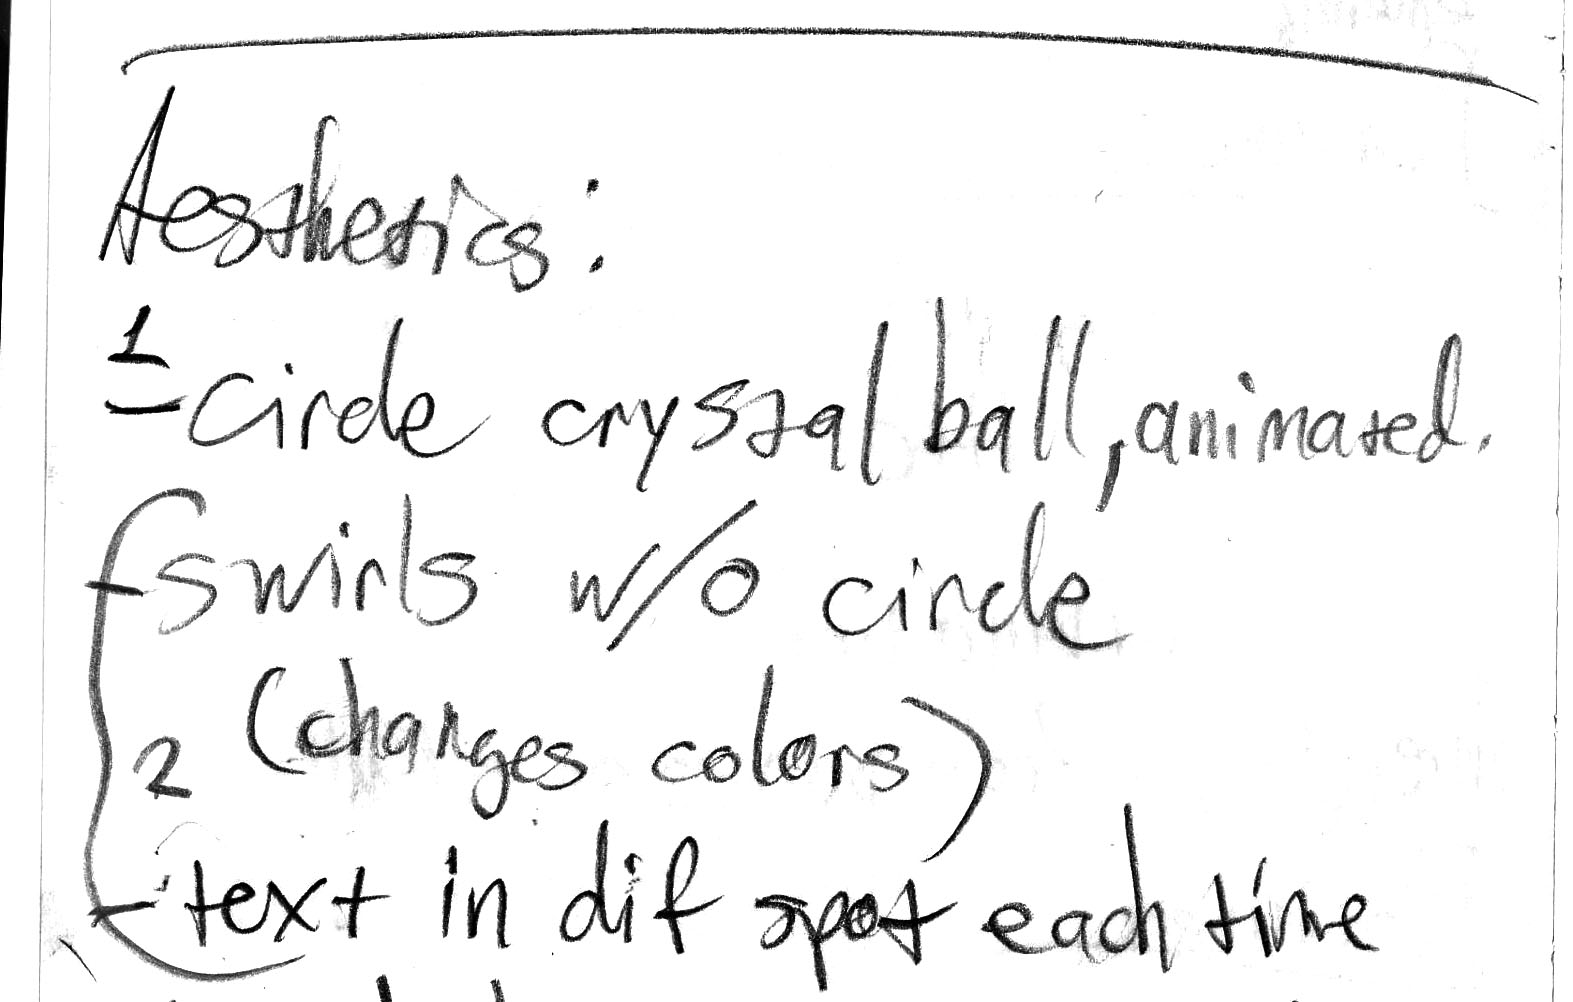 Aesthetics:
1
- circle crystal ball, animated.
- swirls w/o circle
2 (changes colors)
- text in dif spot each time